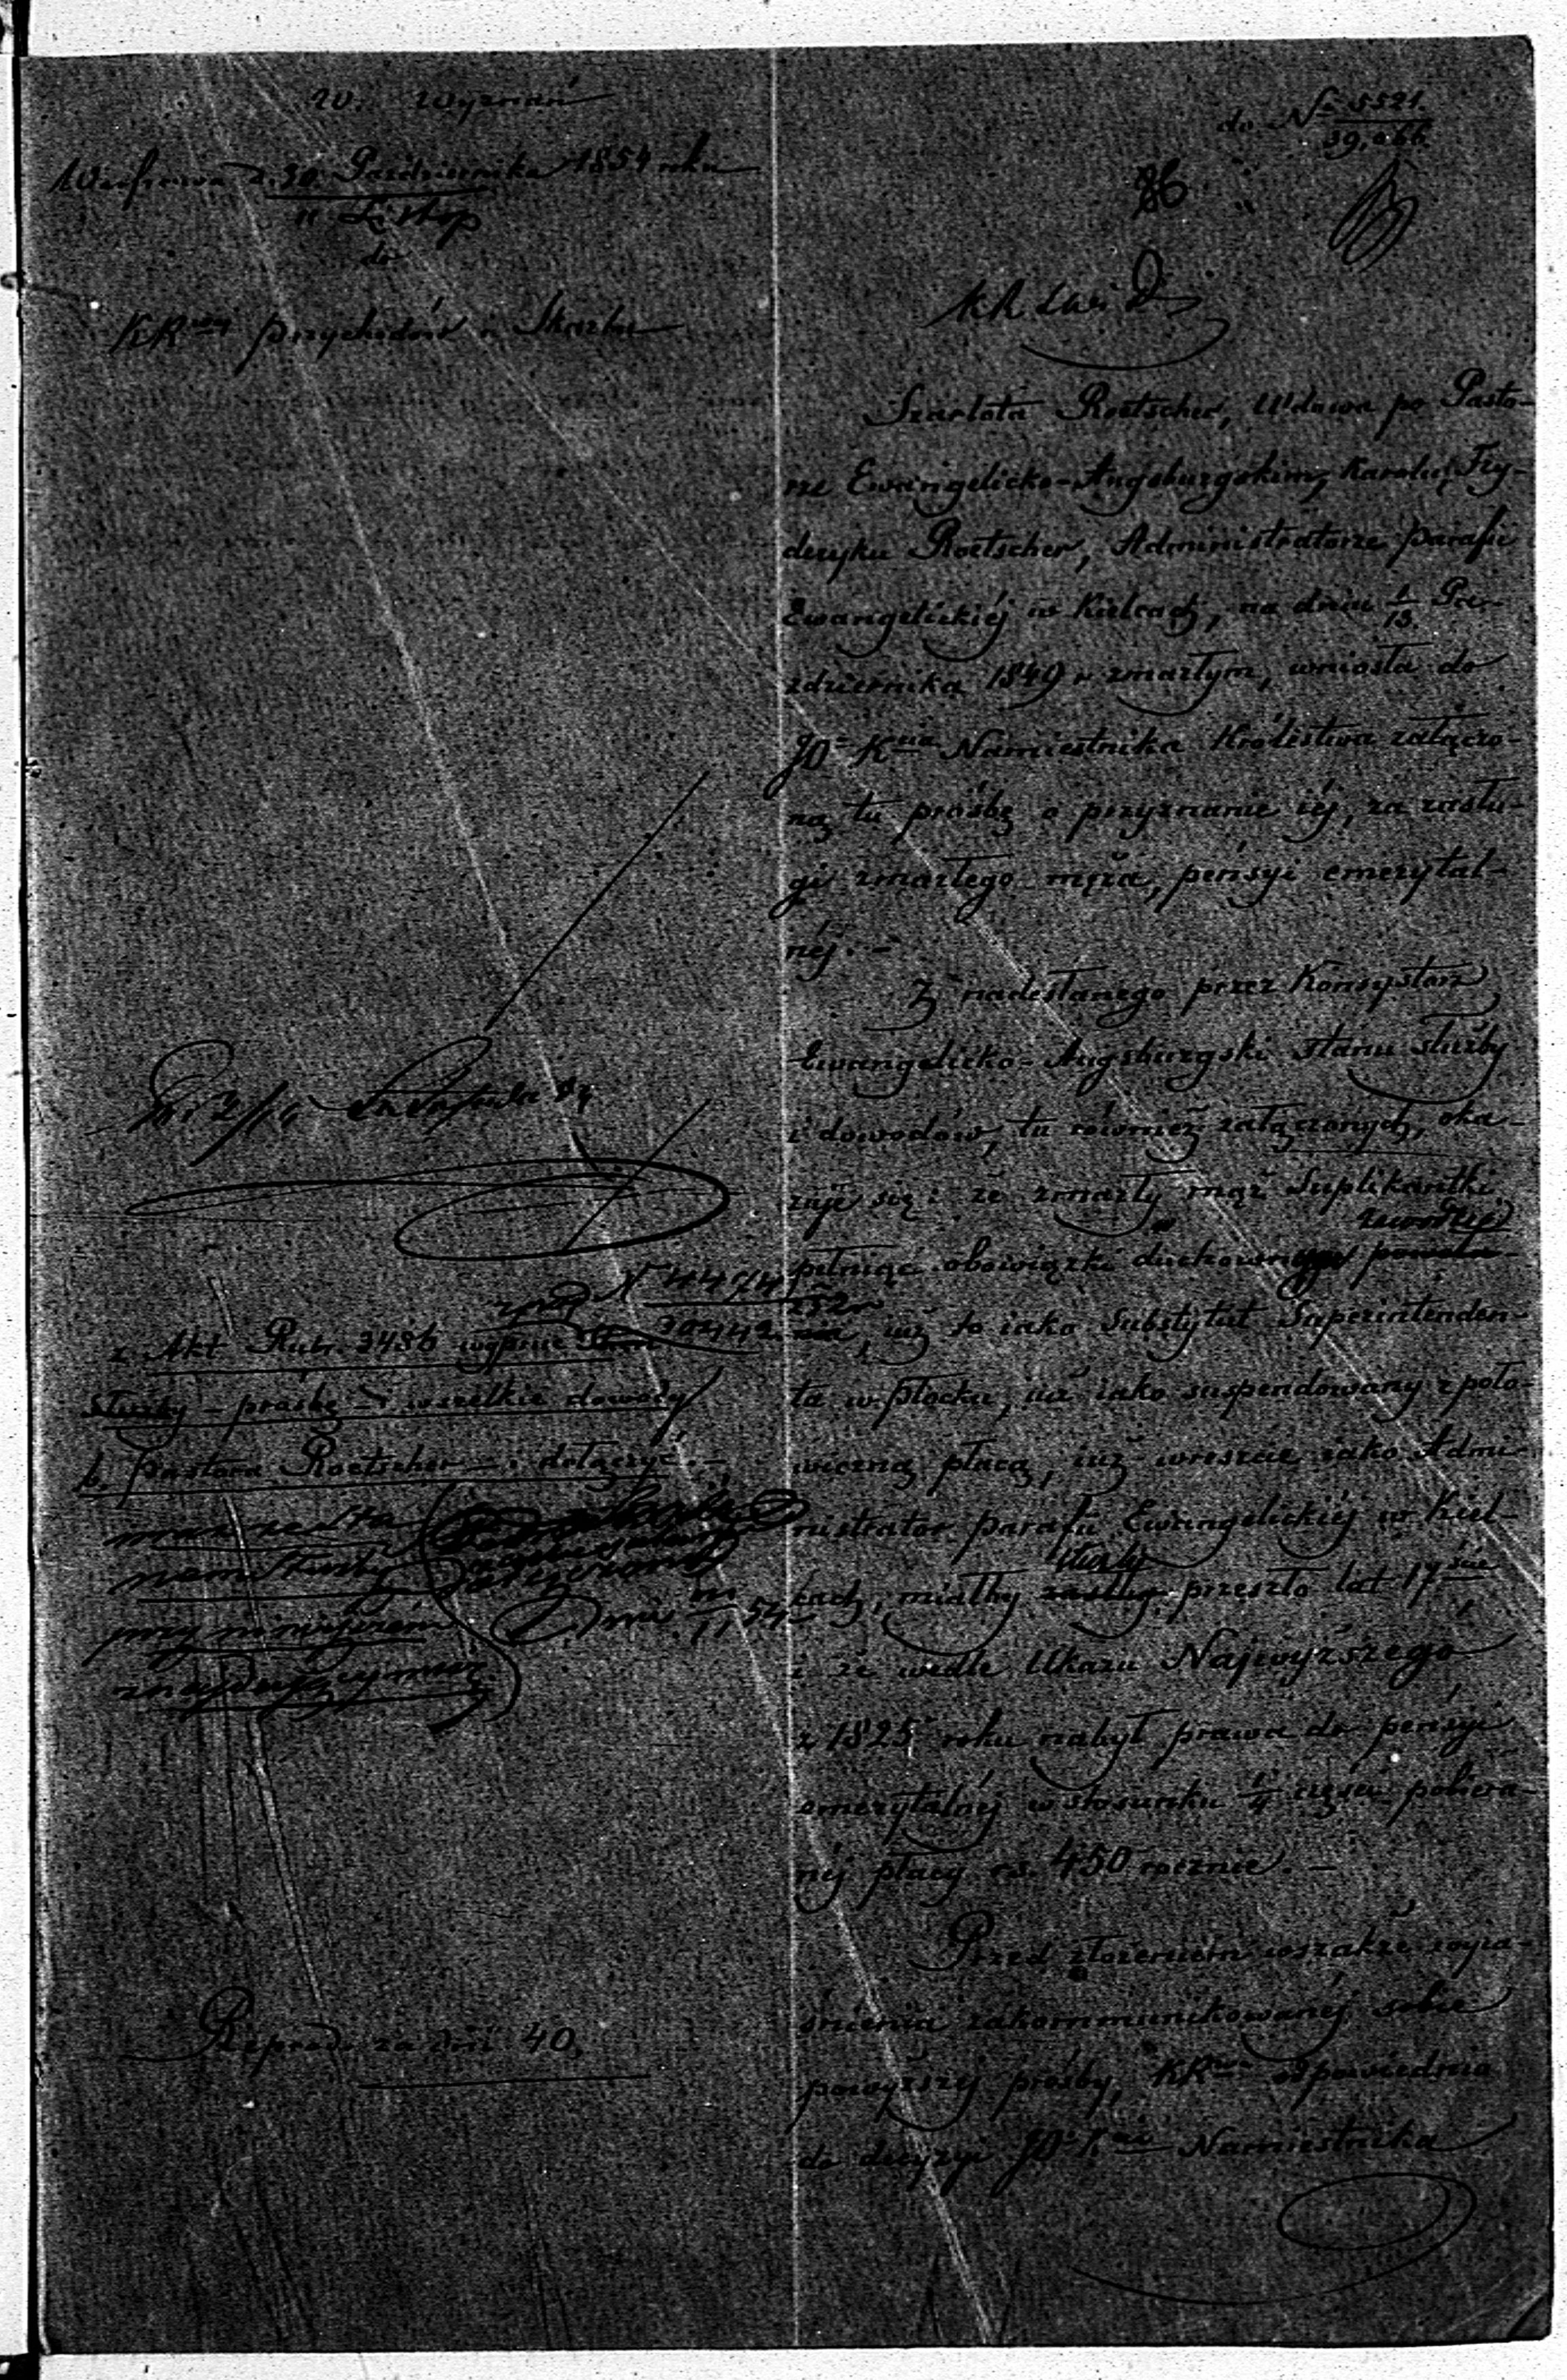 W. Wyznań
Warszawa d. 30 Października 1854 roku
11 Listop
do
KRząd Przychodów i Skarbu
do N 5521
39,066
86
KRSWiD
Szarlota Roetscher, Wdowa po Pasto-
rze Ewangelicko-Augsburgskim, Karolu Fry-
deryku Roetscher, Administratorze parafii
Ewangelickiéj w Kielcach, na dniu 1/13 Paź-
dziernika 1849 r. zmarłym, wniosła do
JO. Kcia Namiestnika Królestwa załączo-
ną tu prośbę o przyznanie iéj, za zasłu-
gi zmarłego męża, pensyi emerytal-
néj. –
Z nadesłanego przez Konsystorz
Ewangelicko-Augsburgski stanu służby
i dowodów, tu również załączonych, oka-
zuje się: że zmarły mąż Suplikantki
w zawodzie
pełniąc obowiązki duchowny
, iuż to iako Substytut Superintenden-
ta w Płocku, iuż iako suspendowany z poło-
wiczną płacą, iuż wreszcie iako Admi-
nistrator parafii Ewangelickiéj w Kiel-
służby
cach, miałby zasługi przeszło lat 17
i że wedle Ukazu Najwyższego
z 1825 roku nabył prawa do pensyi
emerytalnéj w stosunku 1/4 części pobiera-
néj płacy rs. 450 rocznie. –
Przed złożeniem wszakże wyja-
śnienia zakommunikowanéj sobie
powyższéj prośby, KR odpowiednio
do decyzyi JO. Kcia Namiestnika
z Akt Rubr. 3486 wyjąć stan
służby – prośbę – i wszelkie dowody
b. Pastora Roetscher – i dołączyć. –
przy niniejszem
znajdujący
54
Reprod. za dni 40,